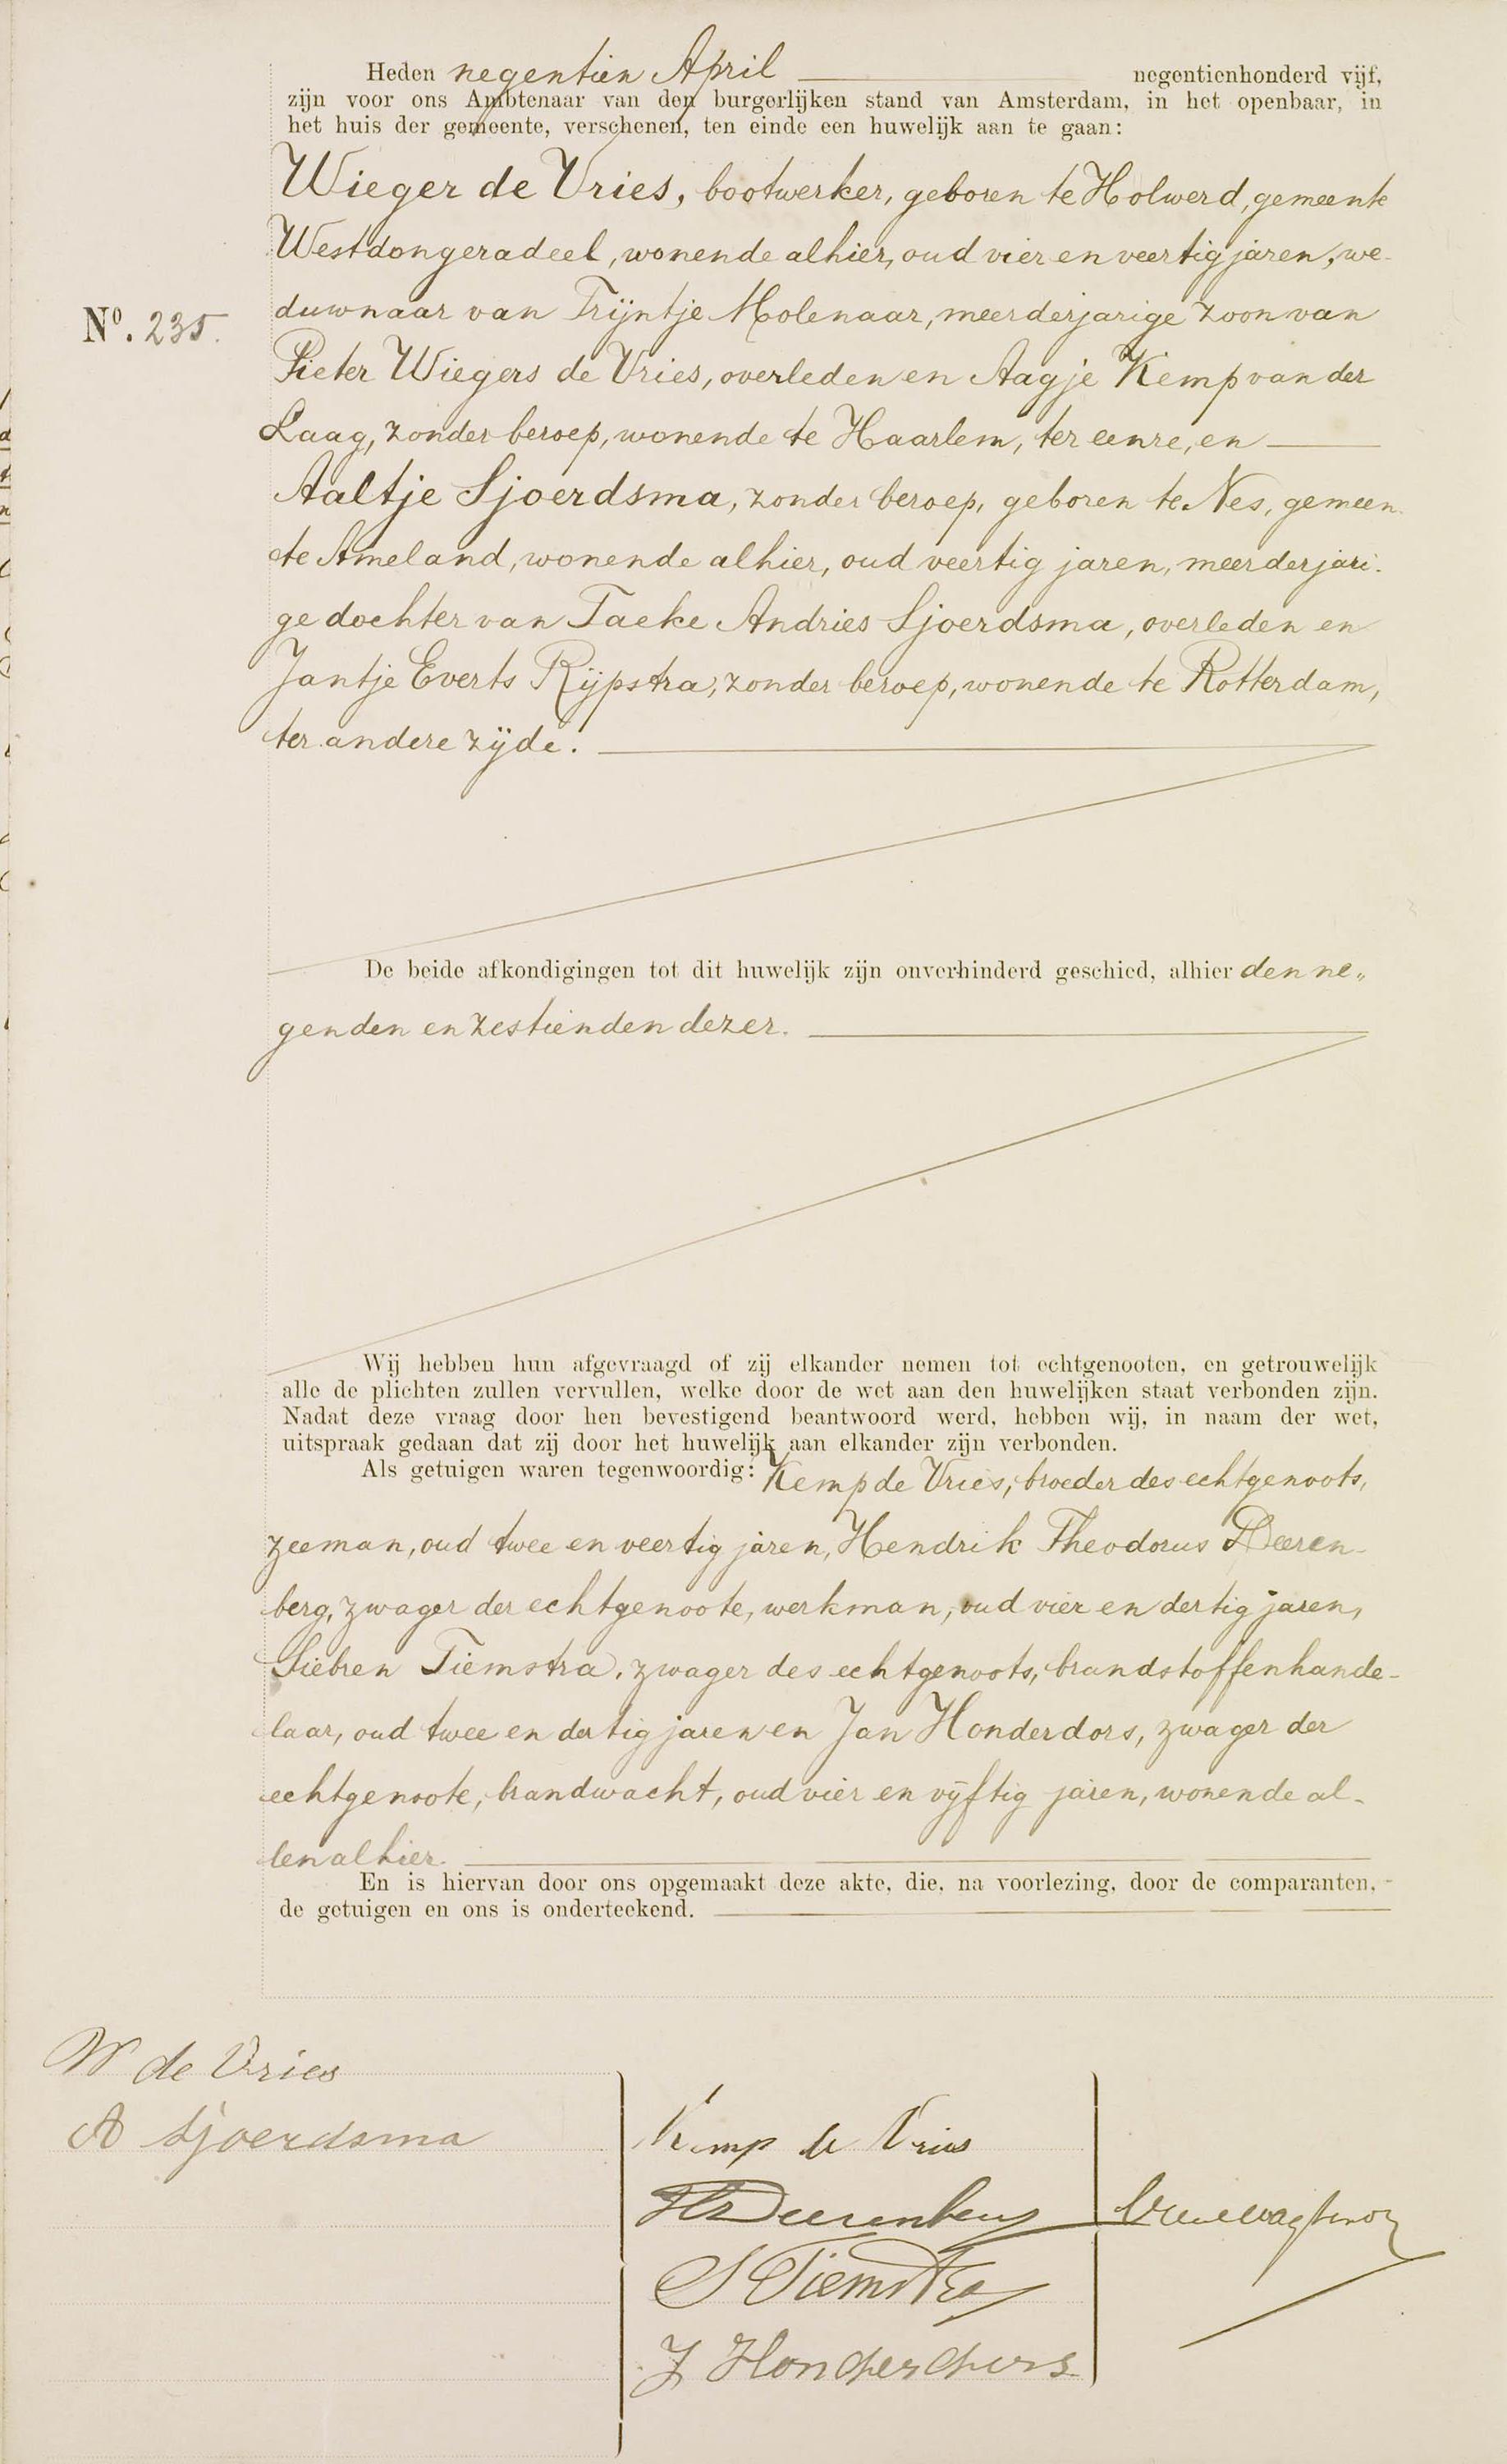 Heden negentien April negentienhonderd vijf,
zijn voor ons Ambtenaar van den burgerlijken stand van Amsterdam, in het openbaar, in
het huis der gemeente, verschenen, ten einde een huwelijk aan te gaan:
Wieger de Vries, bootwerker, geboren te Holwerd, gemeente
Westdongeradeel, wonende alhier, oud vier en veertig jaren, we-
Nº. 235.
duwnaar van Trijntje Molenaar, meerderjarige zoon van
Pieter Wiegers de Vries, overleden en Aagje Kemp van der
Laag, zonder beroep, wonende te Haarlem, ter eenre, en
Aaltje Sjoerdsma, zonder beroep, geboren te Nes, gemeen-
te Ameland, wonende alhier, oud veertig jaren, meerderjari-
ge dochter van Taeke Andries Sjoerdsma, overleden en
Jantje Everts Rijpstra, zonder beroep, wonende te Rotterdam,
ter andere zijde.
De beide afkondigingen tot dit huwelijk zijn onverhinderd geschied, alhier den ne„
genden en zestienden dezer.
Wij hebben hun afgevraagd of zij elkander nemen tot echtgenooten, en getrouwelijk
alle de plichten zullen vervullen, welke door de wet aan den huwelijken staat verbonden zijn.
Nadat deze vraag door hen bevestigend beantwoord werd, hebben wij, in naam der wet,
uitspraak gedaan dat zij door het huwelijk aan elkander zijn verbonden.
Als getuigen waren tegenwoordig: Kemp de Vries, broeder des echtgenoots,
zeeman, oud twee en veertig jaren, Hendrik Theodorus Deeren-
berg, zwager der echtgenoote, werkman, oud vier en dertig jaren,
Siebren Tiemstra, zwager des echtgenoots, brandstoffenhande-
laar, oud twee en dertig jaren en Jan Honderdors, zwager der
echtgenoote, brandwacht, oud vier en vijftig jaren, wonende al-
len alhier.
En is hiervan door ons opgemaakt deze akte, die, na voorlezing, door de comparanten,
de getuigen en ons is onderteekend.
W de Vries
A Sjoerdsma
Kemp de Vries
H Deerenberg
S Tiemstra
J Honderdors